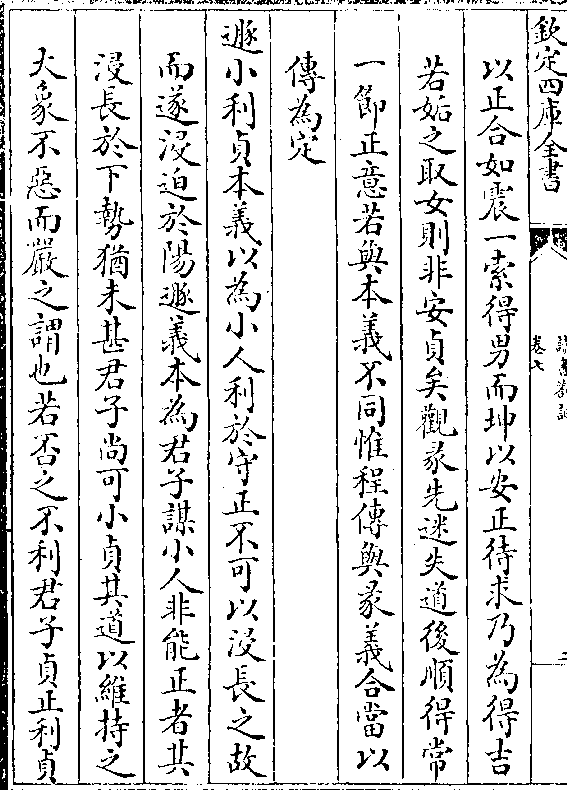 欽定四庫全書
卷七
以正合如震一索得男而坤以安正待求乃為得吉
若姤之取女則非安貞矣觀彖先迷失道後順得常
一節正意若與本義不同惟程傳與彖義合當以
傳為定
遯小利貞本義以為小人利於守正不可以浸長之故
而遂浸迫於陽遯義本為君子謀小人非能正者其
浸長於下勢猶未甚君子尚可小貞其道以維持之
大象不惡而嚴之謂也若否之不利君子貞正利貞